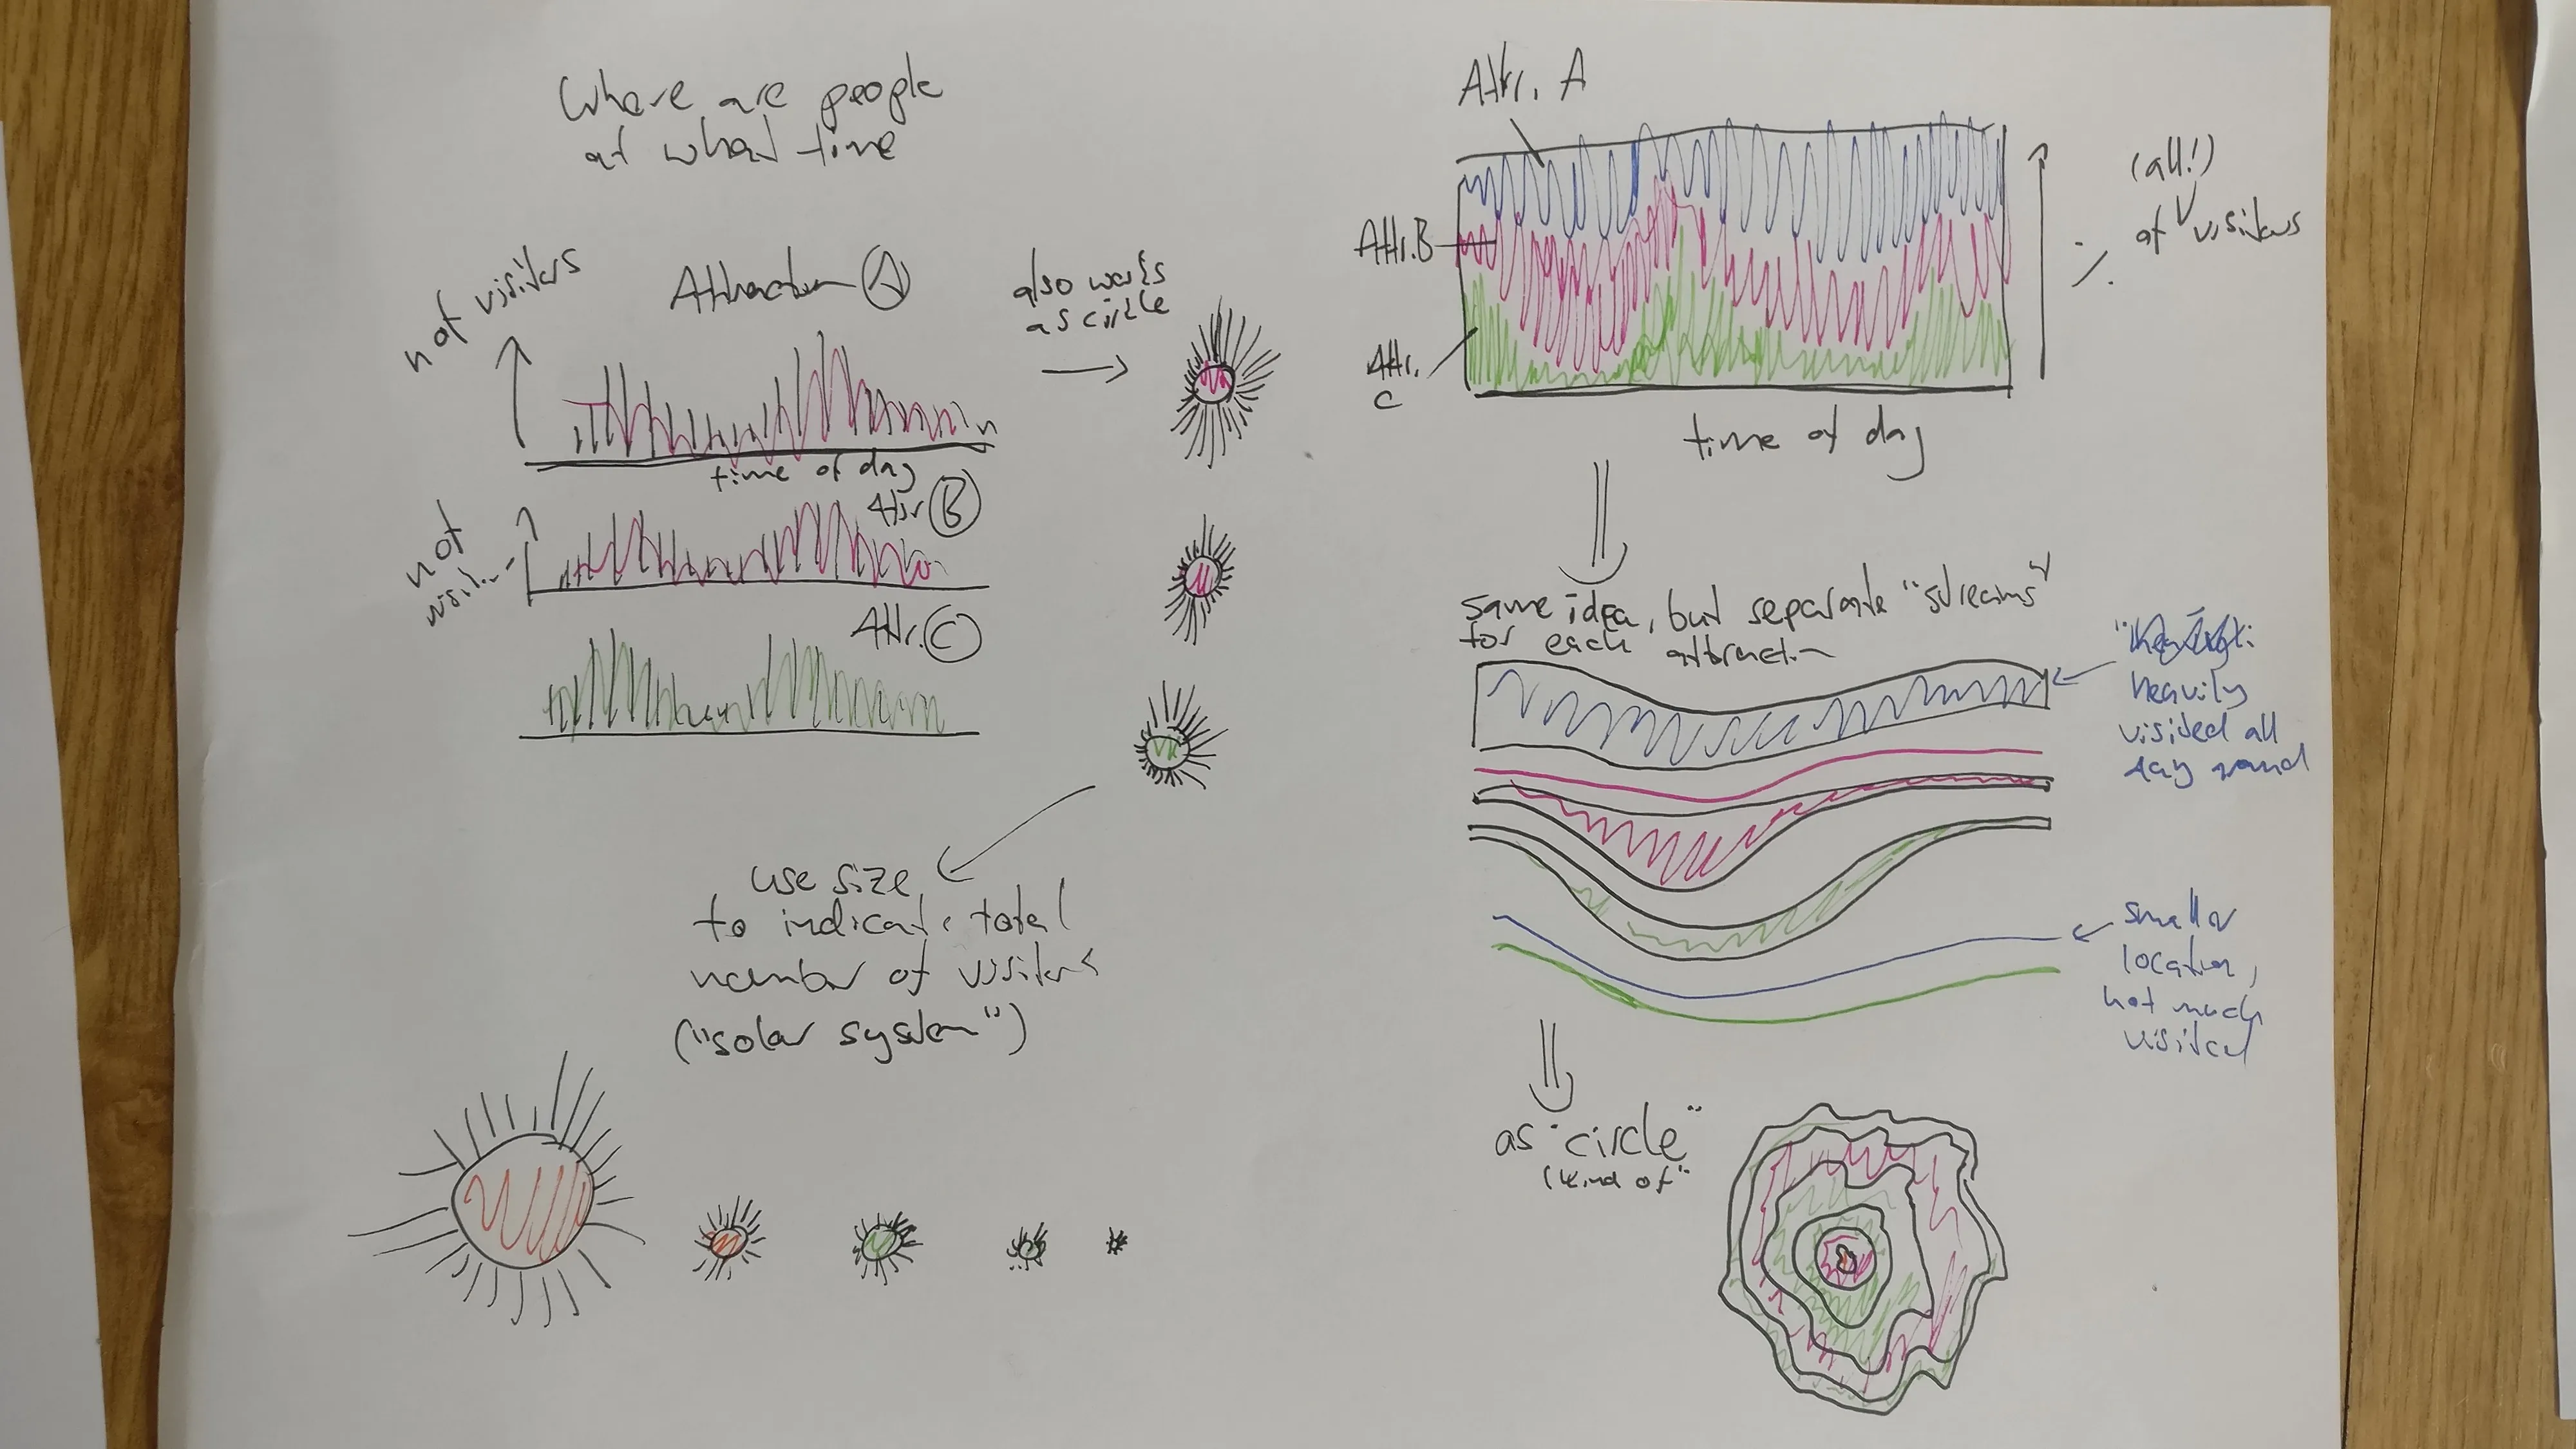 Where are people
at what time
n of visitors
Attraction A
also works
as circle
time of day
n of
visit..
Attr B
Attr. C
use size
to indicate total
number of visitors
("solar system")
Attr. A
Attr. B
Attr.
C
(all!)
% of visitors
time of day
same idea, but separate "streams"
for each attraction
heavily
visited all
day round
smaller
location,
not much
visited
as "circle"
(kind of"